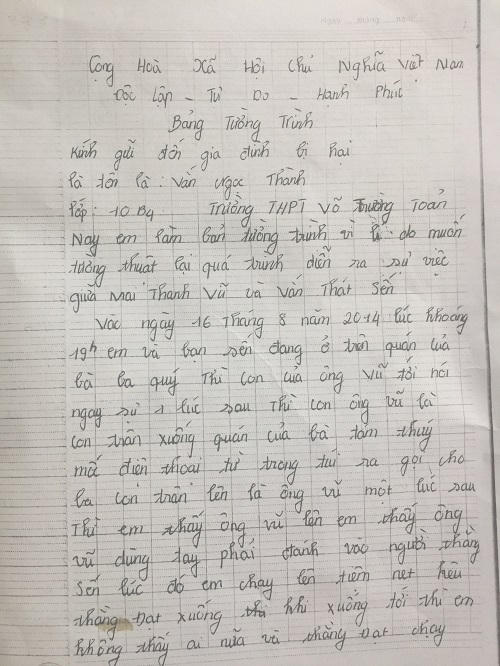 Cộng Hoà Xã Hội Chủ Nghĩa Việt Nam
Độc Lập - Tự Do - Hạnh Phúc
Bảng Tường Trình
Kính gửi đối gia đình bị hại
là tôi là : Văn Ngọc Thành
lớp : 10 B4 Trường THPT Võ Trường Toản
Nay em làm bản tường trình vì lí do muốn
tường thuật lại quá trình diễn ra sự việc
giữa Mai Thanh Vũ và Văn Thát Sến
Vào ngày 16 Tháng 8 năm 2014 lúc khoảng
19h em và bạn sến đang ở trên quán của
bà ba quý Thì con của ông Vũ tới nói
ngay sự 1 lúc sau Thì con ông vũ là
con trân xuống quán của bà tám thuý
mốc điện thoại từ trong tui ra gọi cho
ba con trân lên là ông vũ một lúc sau
Thì em thấy ông vũ lên em thấy ông
vũ dùng tay phải đánh vào người thằng
sến lúc đó em chạy lên tiệm net kêu
thằng Đạt xuống khi xuống tới thì em
không thấy ai nữa và thằng Đạt chạy